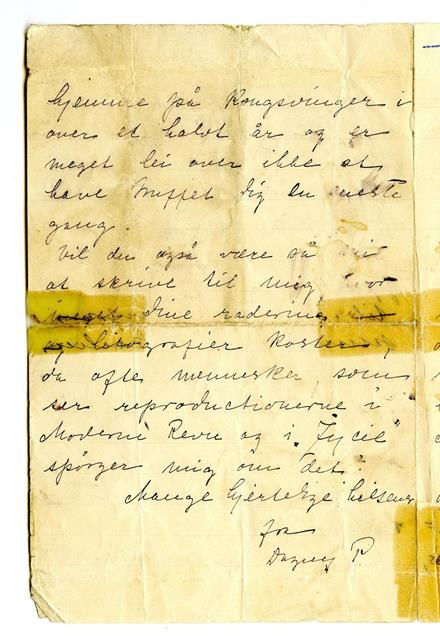 hjemme på Kongsvinger i
over et halvt år og er
meget lei over ikke at
have truffet dig en neste
gang.
Vil du også være så
at skrive til mig hvor
meget dine radering
og litografier koster,
da ofte mennesker som
ser reproductionerne i
Moderni Revu og i "Zycie"
spørger mig om det.
Mange hjertelige hilsener
fra
Dagny P.